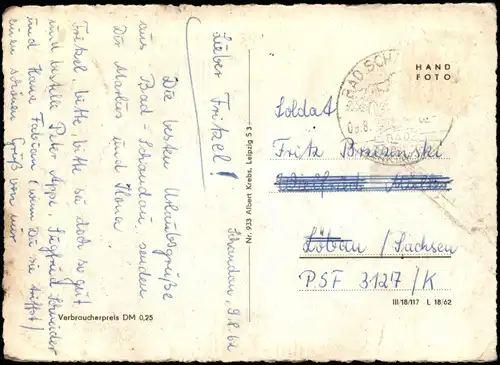 Schandau, 9.8.62
Lieber Fritzel!
Die besten Urlaubsgrüße
aus Bad-Schandau senden
Dir Markus und Ilona.
Fritzel, bitte, bitte sei doch so gut
und bestelle Peter Appl, Siegfried Schneider
und Hans Fabian (wenn Du sie triffst)
einen schönen Gruß von mir.
Verbraucherpreis DM 0,25
Nr. 933 Albert Krebs, Leipzig S 3
BAD SCH
HAND
FOTO
Soldat
Fritz
Löbau / Sachsen
PSF 3127/K
III/18/117 L 18/62